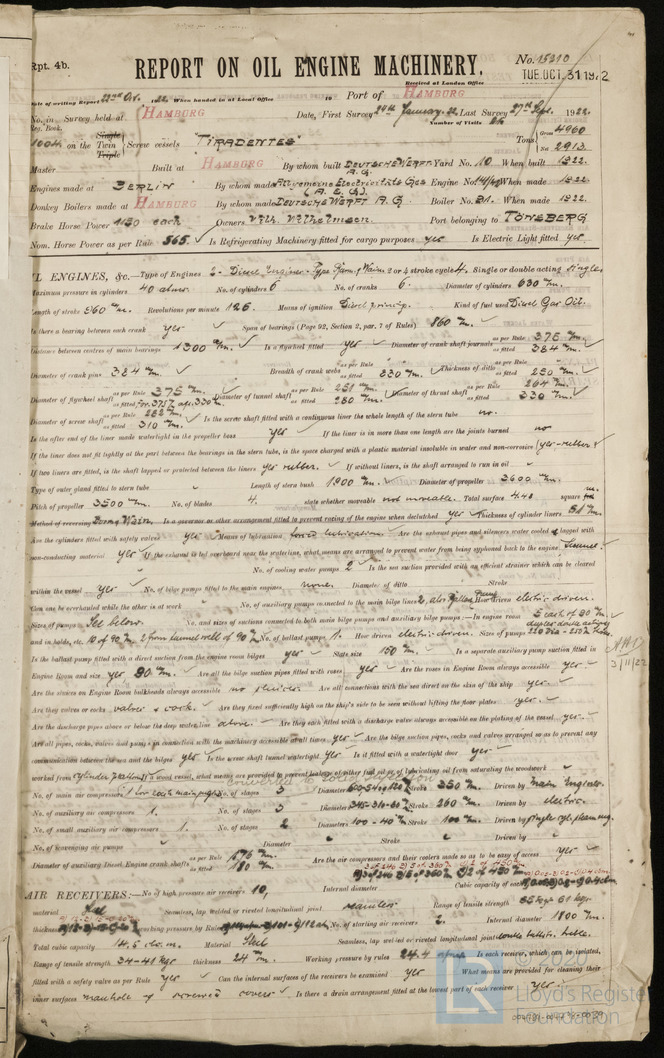 Rpt. 4b.
REPORT ON OIL ENGINE MACHINERY.
No. 15210
Received at London Office
TUE. OCT. 31 1922
Date of writing Report 22nd Oct. 1922 When handed in at Local Office 19 Port of HAMBURG
No. in Survey held at HAMBURG Date, First Survey January 22 Last Survey 27th Sept. 1922
Reg. Book. Number of Visits
on the Single Twin Triple Screw vessels "TIRADENTES" Tons Gross 4960 Net 2913
Master Built at HAMBURG By whom built DEUTSCHE WERFT A.G. Yard No. 10 When built 1922.
Engines made at BERLIN By whom made Allgemeine Electricitäts Ges (A.E.G.) Engine No. When made 1922
Donkey Boilers made at HAMBURG By whom made DEUTSCHE WERFT A.G. Boiler No. 31. When made 1922.
Brake Horse Power 1150 each Owners Wilh. Wilhelmsen. Port belonging to TÖNSBERG
Nom. Horse Power as per Rule 565. Is Refrigerating Machinery fitted for cargo purposes yes Is Electric Light fitted yes
OIL ENGINES, &c.—Type of Engines 2- Diesel Engines Type Burm. & Wain 2 or 4 stroke cycle 4. Single or double acting Single
Maximum pressure in cylinders 40 atm. No. of cylinders 6 No. of cranks 6. Diameter of cylinders 630 m/m.
Length of stroke 960 m/m. Revolutions per minute 125. Means of ignition Diesel princip. Kind of fuel used Diesel Gas Oil.
Is there a bearing between each crank yes Span of bearings (Page 92, Section 2, par. 7 of Rules) 860 m/m.
Distance between centres of main bearings 1300 m/m. Is a flywheel fitted yes Diameter of crank shaft journals as per Rule 375 m/m. as fitted 384 m/m.
Diameter of crank pins 384 m/m. Breadth of crank webs as per Rule as fitted 330 m/m. Thickness of ditto as per Rule as fitted 250 m/m.
Diameter of flywheel shaft as per Rule 375 m/m. as fitted Diameter of tunnel shaft as per Rule 251 m/m. as fitted 280 m/m. Diameter of thrust shaft as per Rule 264 m/m. as fitted 330 m/m.
Diameter of screw shaft as per Rule 282 m/m. as fitted 310 m/m. Is the screw shaft fitted with a continuous liner the whole length of the stern tube no.
Is the after end of the liner made watertight in the propeller boss yes If the liner is in more than one length are the joints burned no
If the liner does not fit tightly at the part between the bearings in the stern tube, is the space charged with a plastic material insoluble in water and non-corrosive yes-rubber
If two liners are fitted, is the shaft lapped or protected between the liners yes rubber. If without liners, is the shaft arranged to run in oil
Type of outer gland fitted to stern tube Length of stern bush 1800 m/m. Diameter of propeller 3600 m/m.
Pitch of propeller 3500 m/m. No. of blades 4. state whether moveable not moveable. Total surface 4.40 square
Method of reversing Burm. & Wain. Is a governor or other arrangement fitted to prevent racing of the engine when declutched yes Thickness of cylinder liners 51 m/m.
Are the cylinders fitted with safety valves yes Means of lubrication forced lubrication Are the exhaust pipes and silencers water cooled or lagged with
non-conducting material yes If the exhaust is led overboard near the waterline, what means are arranged to prevent water from being syphoned back to the engine funnel.
No. of cooling water pumps 2 Is the sea suction provided with an efficient strainer which can be cleared
within the vessel yes No. of bilge pumps fitted to the main engines none. Diameter of ditto Stroke
Can one be overhauled while the other is at work No. of auxiliary pumps connected to the main bilge lines 2, also How driven electric driven.
Sizes of pumps See below. No. and sizes of suctions connected to both main bilge pumps and auxiliary bilge pumps—In engine room 5 each of 90 m/m.
and in holds, etc. 10 of 90 m/m 2 from tunnel well of 90 m/m. No. of ballast pumps 1. How driven electric driven. Sizes of pumps
Is the ballast pump fitted with a direct suction from the engine room bilges yes State size 150 m/m. Is a separate auxiliary pump suction fitted in
Engine Room and size yes, 90 m/m. Are all the bilge suction pipes fitted with roses yes Are the roses in Engine Room always accessible yes.
3/11/22
Are the sluices on Engine Room bulkheads always accessible no sluices. Are all connections with the sea direct on the skin of the ship yes
Are they valves or cocks valves & cock. Are they fixed sufficiently high on the ship's side to be seen without lifting the floor plates yes.
Are the discharge pipes above or below the deep water line above. Are they each fitted with a discharge valve always accessible on the plating of the vessel yes.
Are all pipes, cocks, valves and pumps in connection with the machinery accessible at all times yes Are the bilge suction pipes, cocks and valves arranged so as to prevent any
communication between the sea and the bilges yes Is the screw shaft tunnel watertight yes Is it fitted with a watertight door yes
worked from cylinder platform If a wood vessel, what means are provided to prevent leakage of either fuel oil or lubricating oil from saturating the woodwork
No. of main air compressors 1 for each main engine No. of stages 3 Diameters Stroke 350 m/m. Driven by main Engines.
No. of auxiliary air compressors 1. No. of stages 3 Diameters 345-310-60 m/m Stroke 260 m/m. Driven by electric.
No. of small auxiliary air compressors 1. No. of stages 2 Diameters 100-40 m/m Stroke 100 m/m. Driven by single cyl. steam eng.
No. of scavenging air pumps Diameter Stroke Driven by
Diameter of auxiliary Diesel Engine crank shafts as per Rule 175 m/m. as fitted 180 m/m. Are the air compressors and their coolers made so as to be easy of access yes
AIR RECEIVERS:—No. of high pressure air receivers 10, Internal diameter Cubic capacity of each
material Steel Seamless, lap welded or riveted longitudinal joint seamless Range of tensile strength 55 kgr- 61 kgr.
thickness working pressure by Rules No. of starting air receivers 2. Internal diameter 1800 m/m.
Total cubic capacity 14,5 cb.m. Material Steel Seamless, lap welded or riveted longitudinal joint
Range of tensile strength 34-41 kgr thickness 24 m/m. Working pressure by rules 24.4 Is each receiver, which can be isolated,
fitted with a safety valve as per Rule yes Can the internal surfaces of the receivers be examined yes What means are provided for cleaning their
inner surfaces manhole & screwed covers Is there a drain arrangement fitted at the lowest part of each receiver yes
© 2020
LR
Lloyd's Register
Foundation